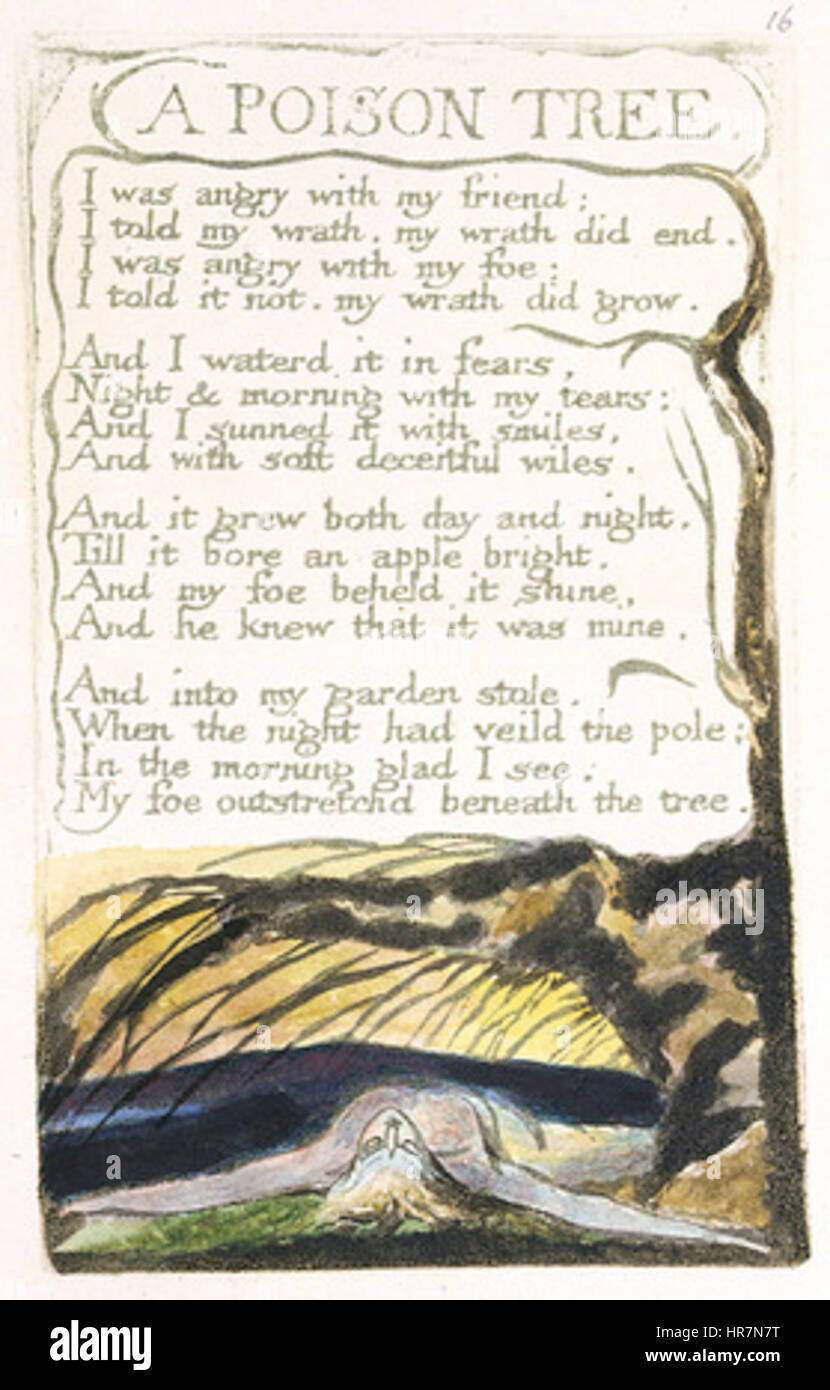 16
A POISON TREE.
I was angry with my friend;
I told my wrath, my wrath did end.
I was angry with my foe:
I told it not, my wrath did grow.
And I waterd it in fears,
Night & morning with my tears:
And I sunned it with smiles,
And with soft deceitful wiles.
And it grew both day and night,
Till it bore an apple bright.
And my foe beheld it shine,
And he knew that it was mine.
And into my garden stole,
When the night had veild the pole;
In the morning glad I see,
My foe outstretchd beneath the tree.
alamy
alamy
a
a
a
a
a
alamy
Image ID: HR7N7T
www.alamy.com